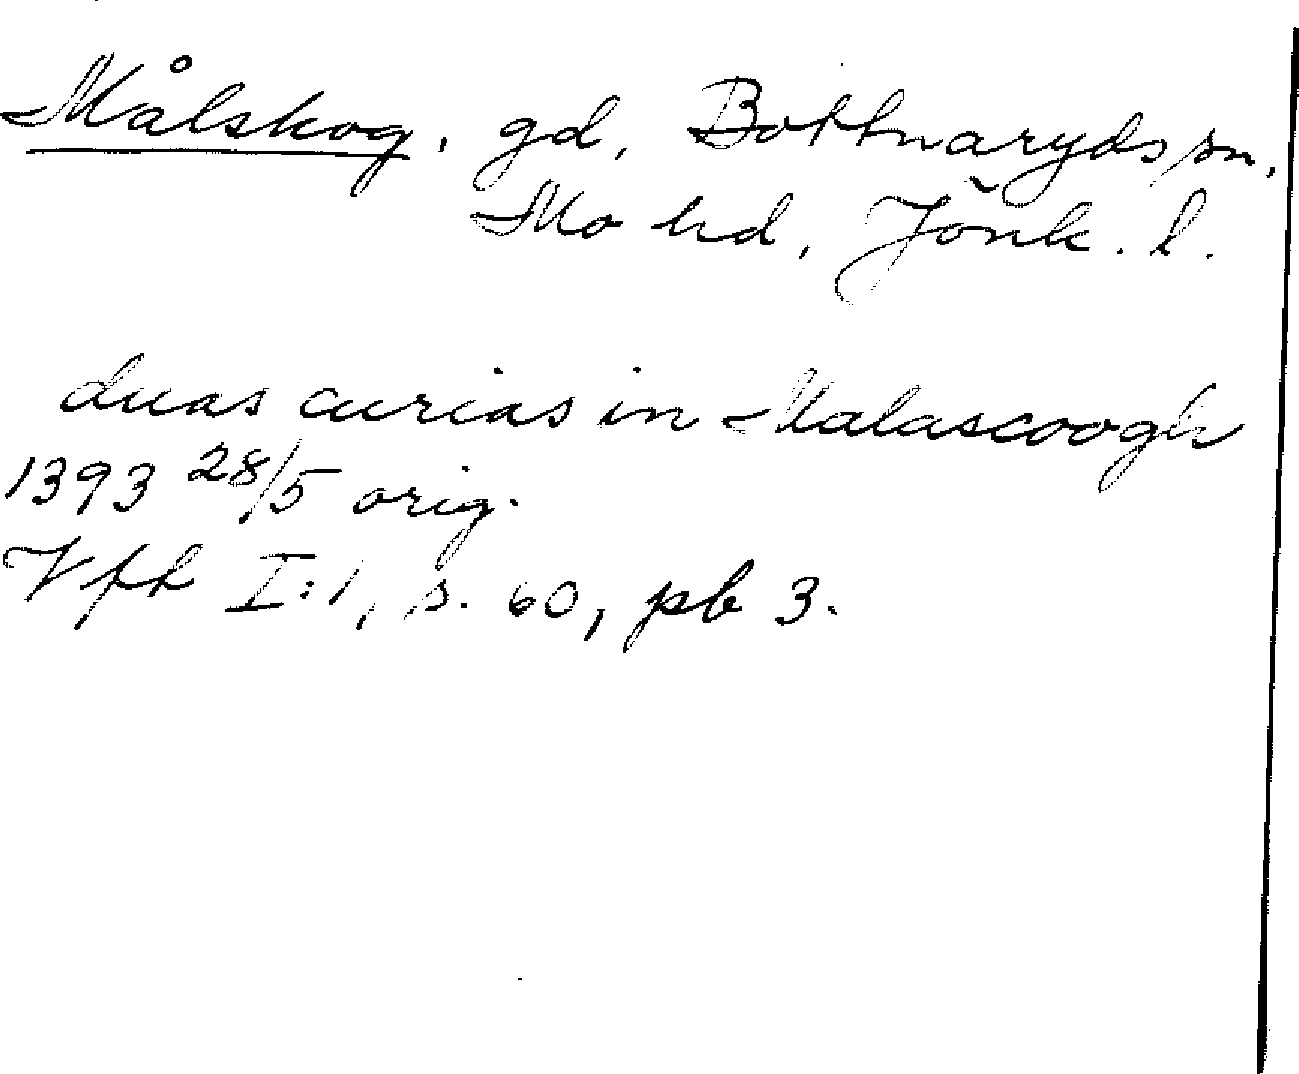 Målskog, gd, Bottnaryds sn,
Mo hd, Jönk. l.
duas curias in Malascoogh
1393 28/5 orig.
Vfh I:1, s. 60, pb 3.